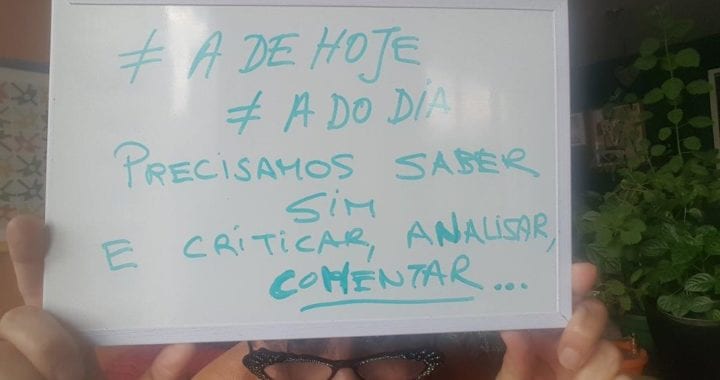 ≠ A DE HOJE
≠ A DO DIA
PRECISAMOS SABER
SIM
E CRITICAR, ANALISAR,
COMENTAR...